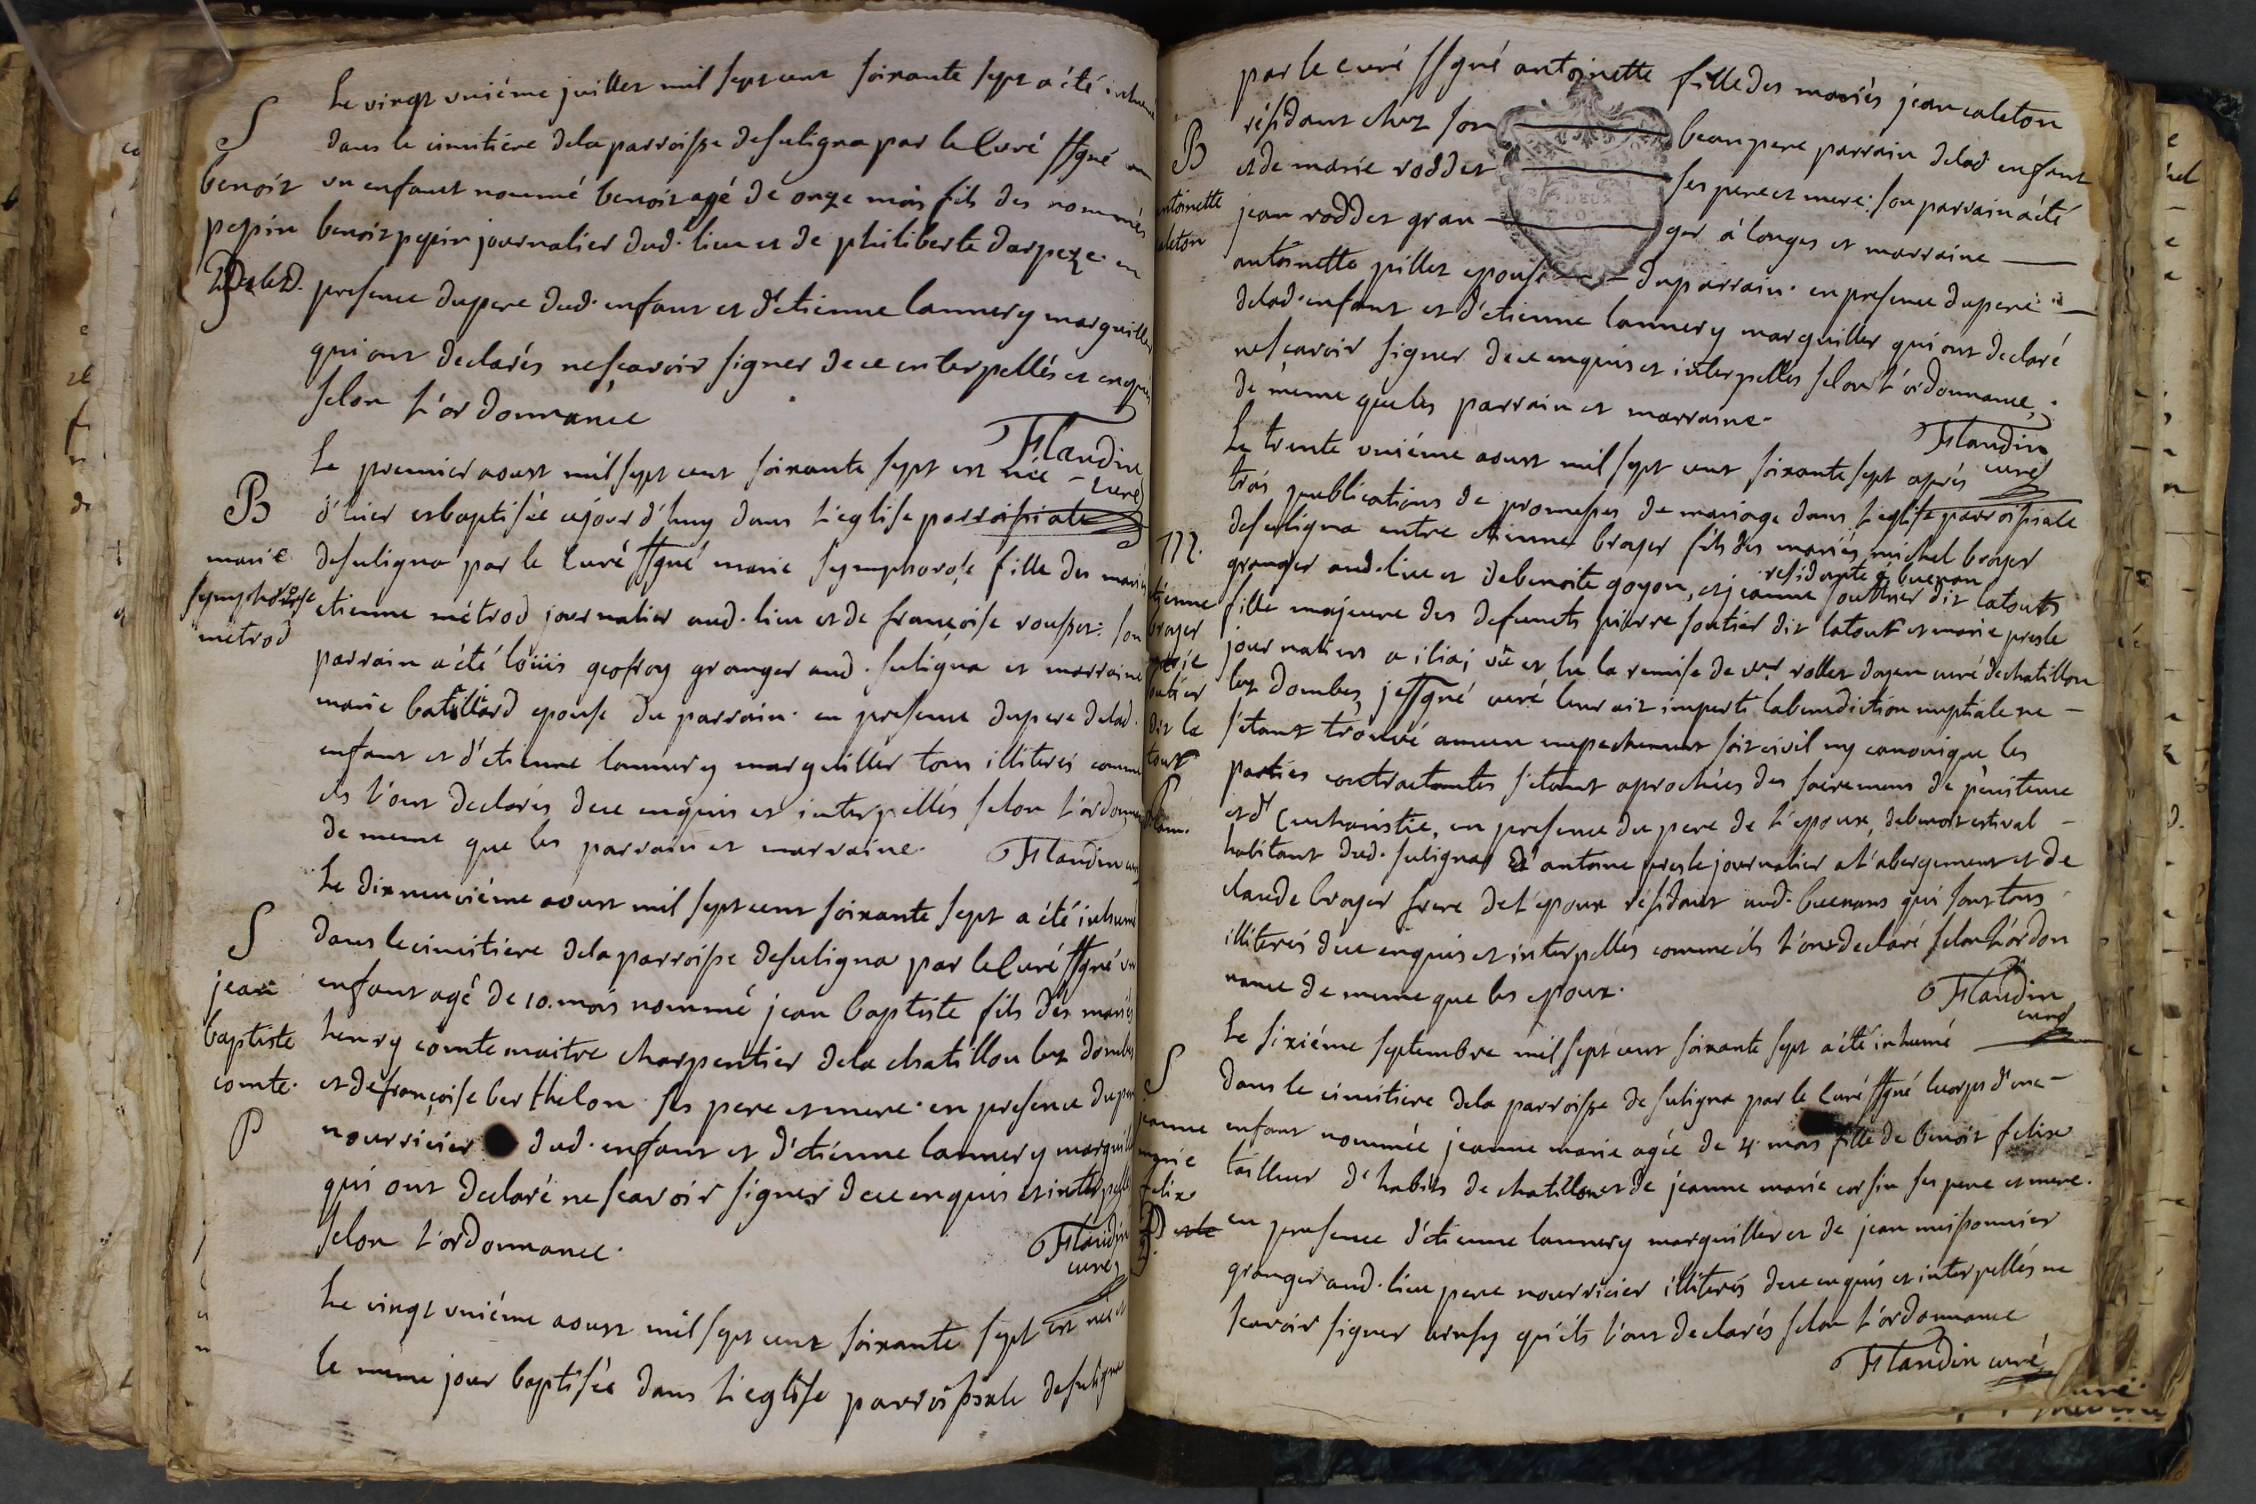 S
benoit
pepin
Le vingt vniéme juillet mil sept cent soixante sept a été
dans le cimitiere dela parroisse desuligna par le Curé ssgné
vn enfant nommé benoit agé de onze mois fils des nommés
benoit pepin journalier dud. lieu et de philiberte darpeze en
presence dupere dud. enfant et d'etienne lannery marguiller
qui ont declarés nesçavoir signer dece enterpellés et enquis
selon l'ordonnance
Flandin
curé
B
marie
symphorose
metrod
Le premier aoust mil sept cent soixante sept est née
d'hier et baptisée cejourd'huy dans l'eglise parroissiale
desuligna par le Curé ssgné marie symphorose fille des mariés
etienne métrod journalier aud. lieu et de françoise rousset: son
parrain a été loüis geofroy granger aud. suligna et marraine
marie batillard epouse du parrain. en presence dupere delad.
enfant et d'etienne lannery marguiller tous illiterés comme
ils l'ont declarés dece enquis et interpellés selon l'ordonnance
de meme que les parrain et marraine.
Flandin curé
S
jean
baptiste
comte.
P
Le dixneuviéme aoust mil sept cent soixante sept a été inhumé
dans lecimitiere dela parroisse desuligna par le Curé ssgné vn
enfant agé de 10. mois nommé jean baptiste fils des mariés
henry comte maitre charpentier dela chatillon les dombes
et de françoise berthelon ses pere et mere. en presence du pere
nourricier dud. enfant et d'etienne lannery marguiller
qui ont declaré nescavoir signer dece enquis et interpellés
selon l'ordonnance.
Flandin
curé
Le vingt vniéme aoust mil sept cent soixante sept est née et
le meme jour baptisée dans l'eglise parroissiale desuligna
B
antoinette
caleton
par le curé ssgné antoinette fille des mariés jean caleton
résidant chez son beaupere parrain delad enfant
et de marie roddet ses pere et mere: son parrain a été
jean roddet granger à longes et marraine
antoinette pillet epouse duparrain. en presence dupere
delad. enfant et d'etienne lannery marguiller qui ont declaré
nescavoir signer dece enquis et interpellés selon l'ordonnance,
de meme que les parrain et marraine.
Flandin
curé
M.
etienne
broyer
soutier
dit la
tout
Le trente vniéme aoust mil sept cent soixante sept aprés
trois publications de promesses de mariage dans l'eglise parroissiale
desuligna entre etienne broyer fils des mariés michel broyer
granger aud. lieu et debenoite goyon, et jeanne soutier dit latout
residante à buenan
fille majeure des defunts pierre soutier dit latout et marie presle
journaliers a vû et lu la remise de rollet doyen curé dechatillon
les dombes, je ssgné curé leur ait imparti labenediction nuptiale ne
s'etant trouvé aucun empechement soit civil ny canonique les
parties contractantes s'etant aprochées des sacremens de pénitence
et d'Eucharistie, en presence du pere de l'epoux, debenoit estival
habitant dud. suligna d'antoine presle journalier a l'abergement et de
claude broyer frere del'epoux résidant aud. buenans qui sont tous
illiterés dece enquis et interpellés comme ils l'ont declaré selon l'ordon
nance de meme que les epoux.
Flandin
curé
S
jeanne
marie
felix
Le sixiéme septembre mil sept cent soixante sept a été inhumé
dans le cimitiere dela parroisse de suligna par le Curé ssgné lecorps d'une
enfant nommée jeanne marie agée de 4. mois fille de benoit felix
tailleur d'habits de chatillon et de jeanne marie corsin ses pere et mere.
en presence d'etienne lannery marguiller et de jean moissonnier
granger aud. lieu pere nourricier illiterés dece enquis et interpellés ne
scavoir signer ainsy qu'ils l'ont declarés selon l'ordonnance
Flandin curé